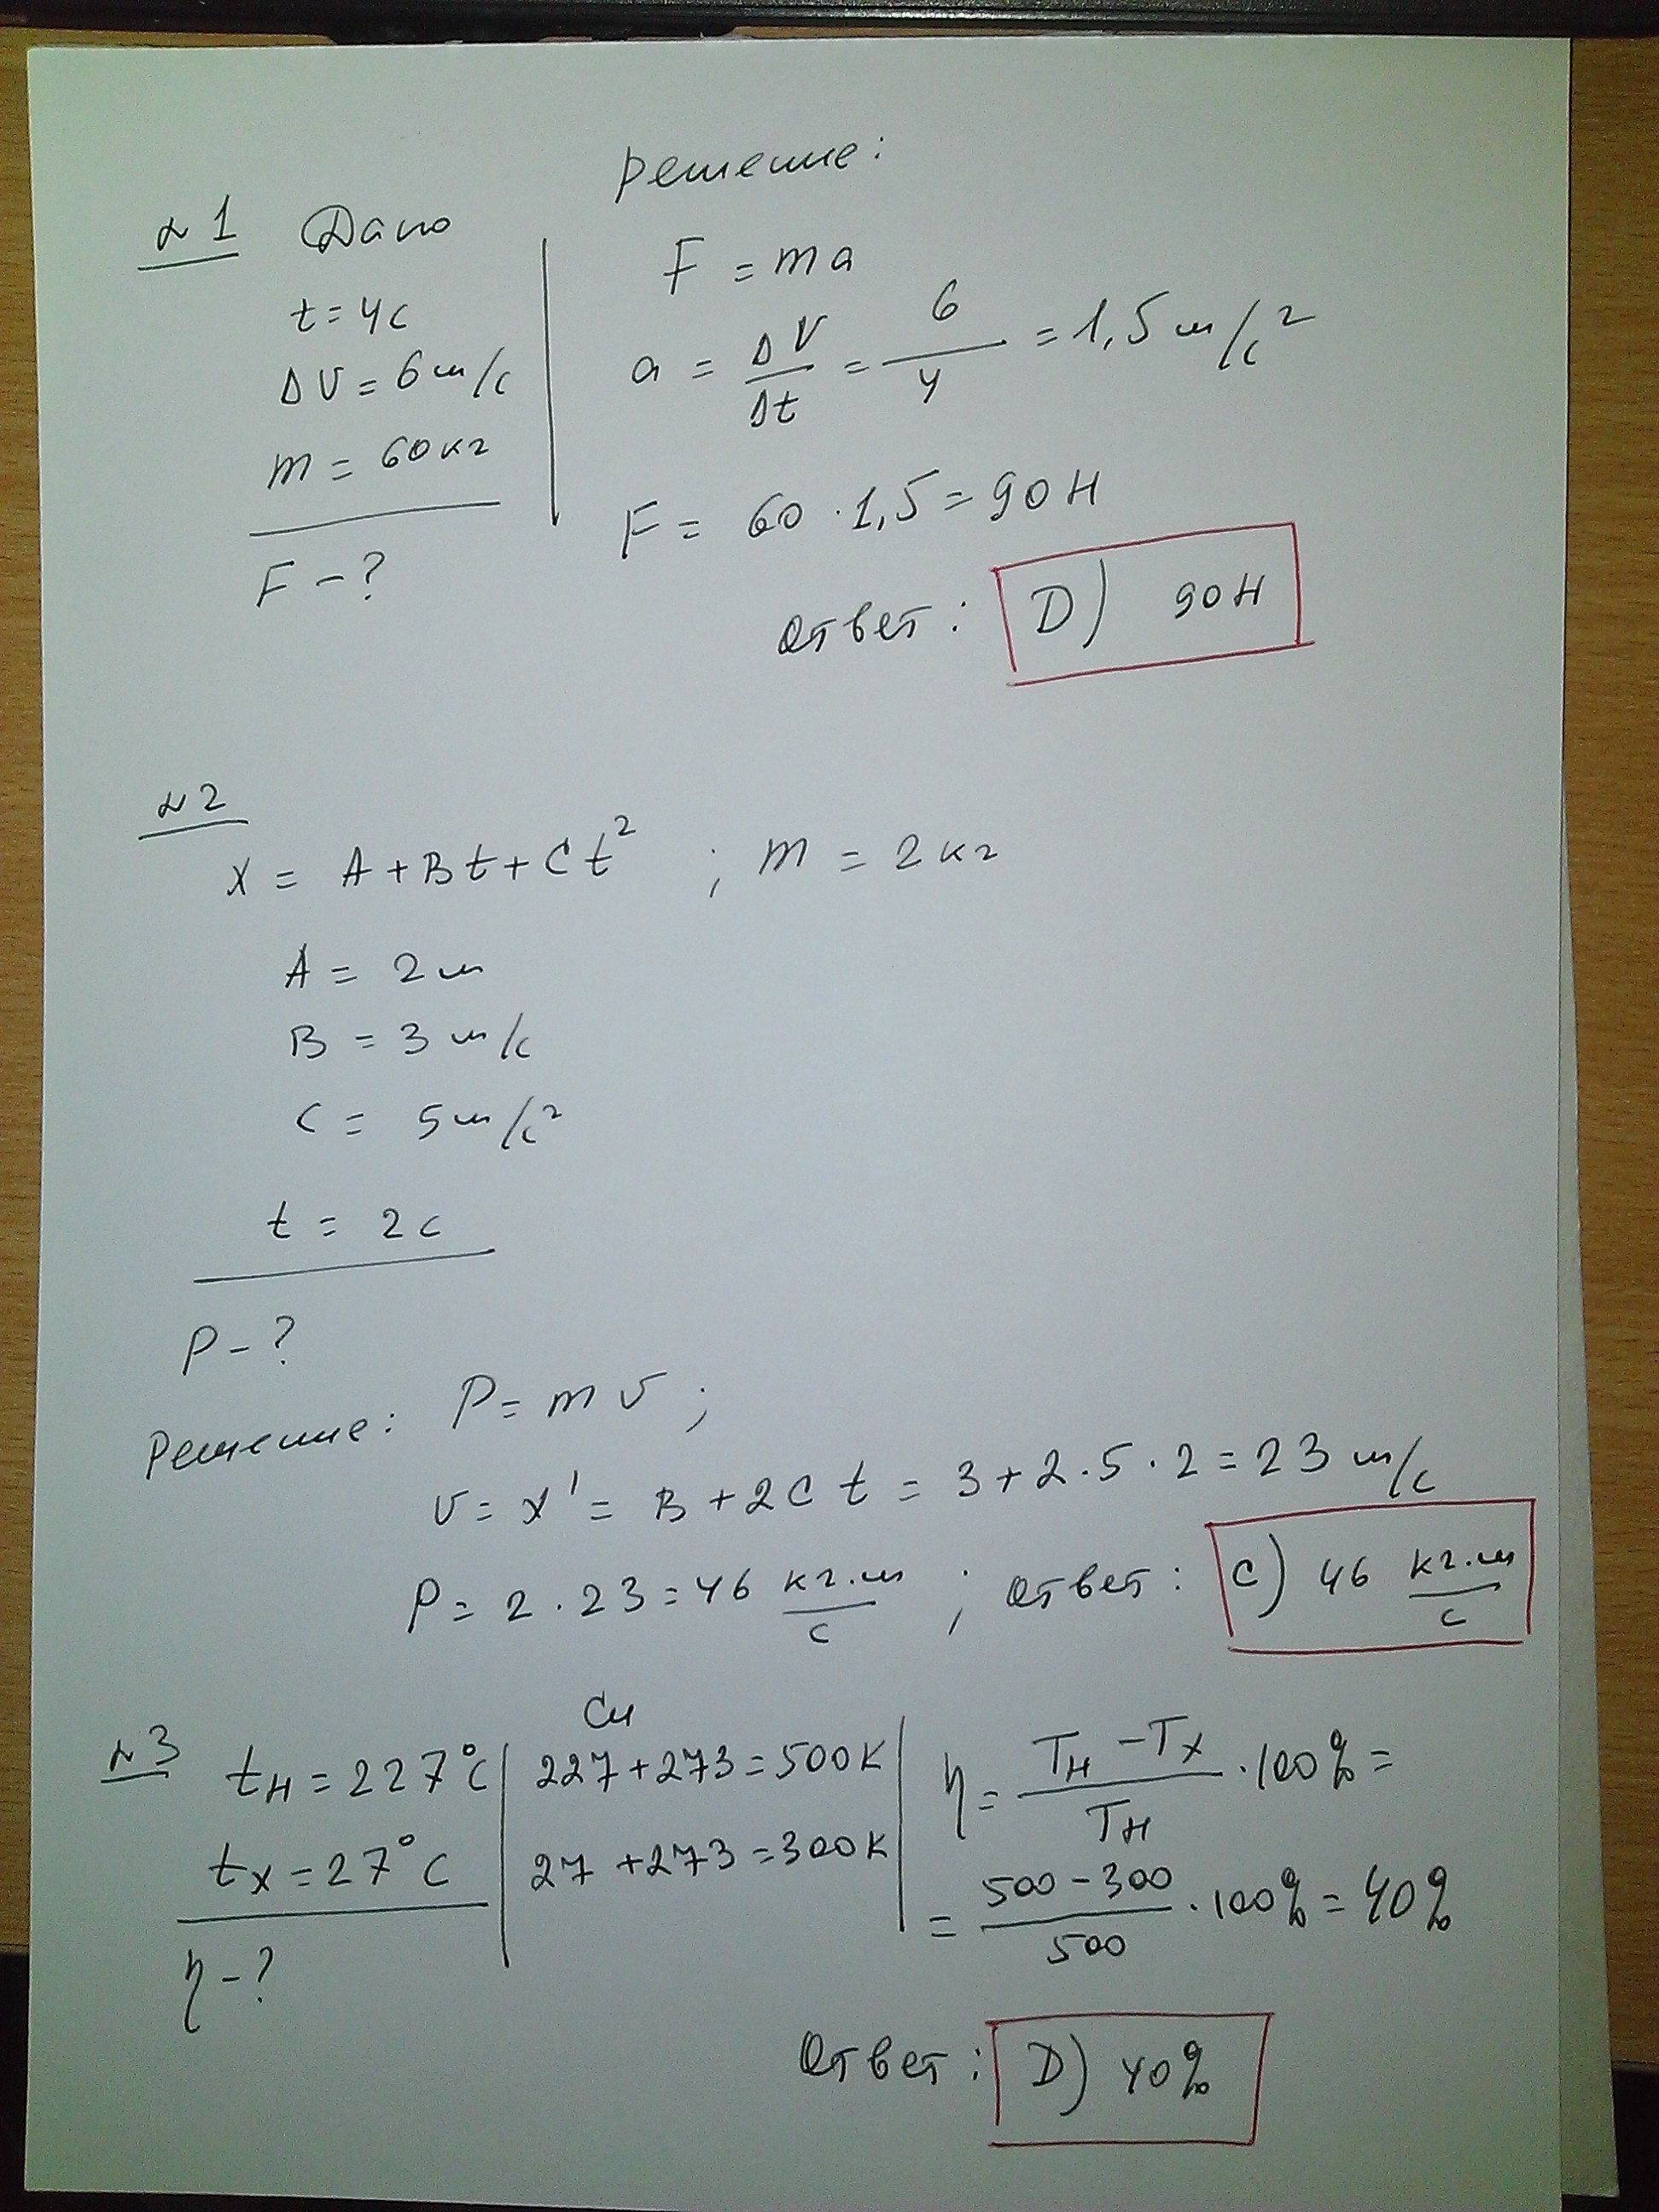 Решение:
№1 Дано
t = 4с
ΔV = 6 м/с
m = 60 кг
F - ?
F = ma
a = ΔV/Δt = 6/4 = 1,5 м/с²
F = 60 · 1,5 = 90 Н
Ответ: D) 90 Н
№2
x = A + Bt + Ct² ; m = 2 кг
A = 2 м
B = 3 м/с
C = 5 м/с²
t = 2 с
P - ?
Решение: P = m v ;
v = x' = B + 2Ct = 3 + 2 · 5 · 2 = 23 м/с
P = 2 · 23 = 46 кг·м/с ; Ответ: C) 46 кг·м/с
№3
tн = 227°C
tx = 27°C
η - ?
Си
227 + 273 = 500K
27 + 273 = 300K
η = Tн - Tx/Tн · 100% =
= 500 - 300/500 · 100% = 40%
Ответ: D) 40%